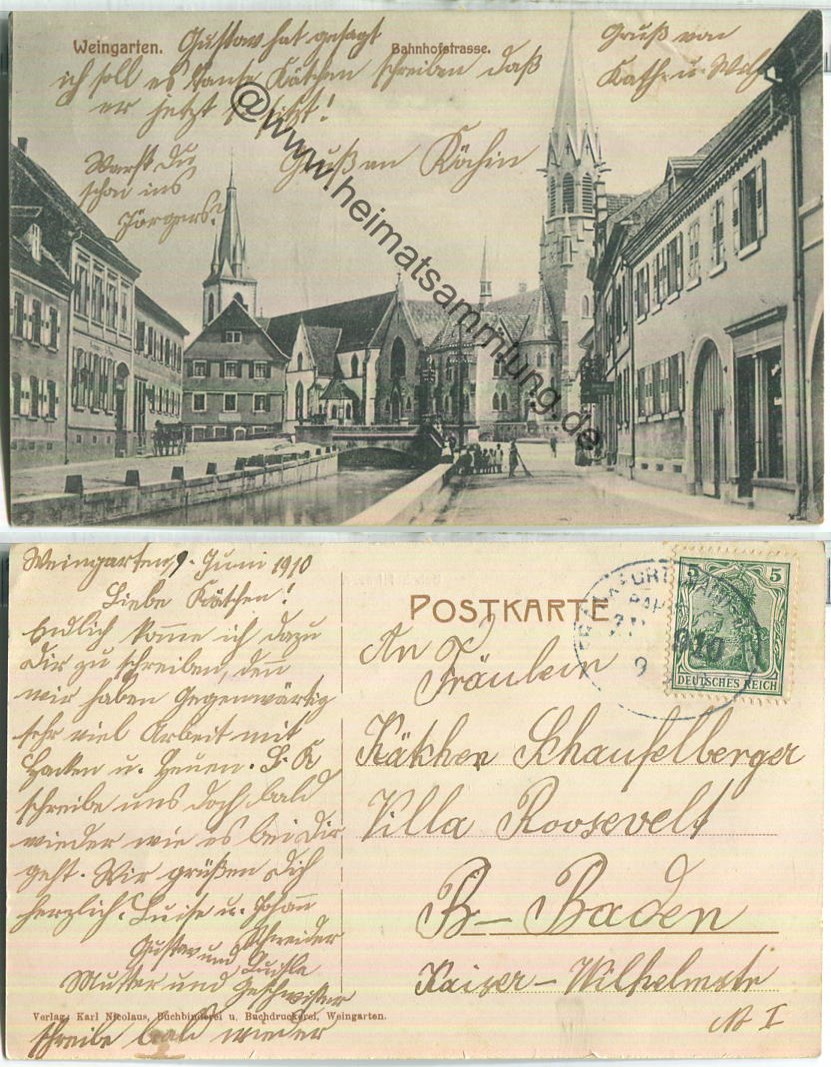 Weingarten.
Bahnhofstrasse.
Gustav hat gesagt
ich soll es Tante Kätchen schreiben daß
er jetzt sitzt!
Gruß von
Kath. u. Wilh
Warst Du
schon ins
Jörgers?
Gruß an Köchin
@www.heimatsammlung.de
Weingarten, 9. Juni 1910
Liebe Kätchen!
Endlich komme ich dazu
Dir zu schreiben, denn
wir haben Gegenwärtig
sehr viel Arbeit mit
Hacken u. Heuen. L. K
schreibe uns doch bald
wieder wie es bei Dir
geht. Wir grüßen Dich
herzlich. Luise u. Johann
Schneider
Gustav und Luisle
Mutter und Geschwister
schreibe bald wieder
Verlag: Karl Nicolaus, Buchbinderei u. Buchdruckerei, Weingarten.
POSTKARTE
An
Fräulein
Kätchen Schaufelberger
Villa Roosevelt
B-Baden
Kaiser-Wilhelmstr
N I
5 5
DEUTSCHES REICH
910
9